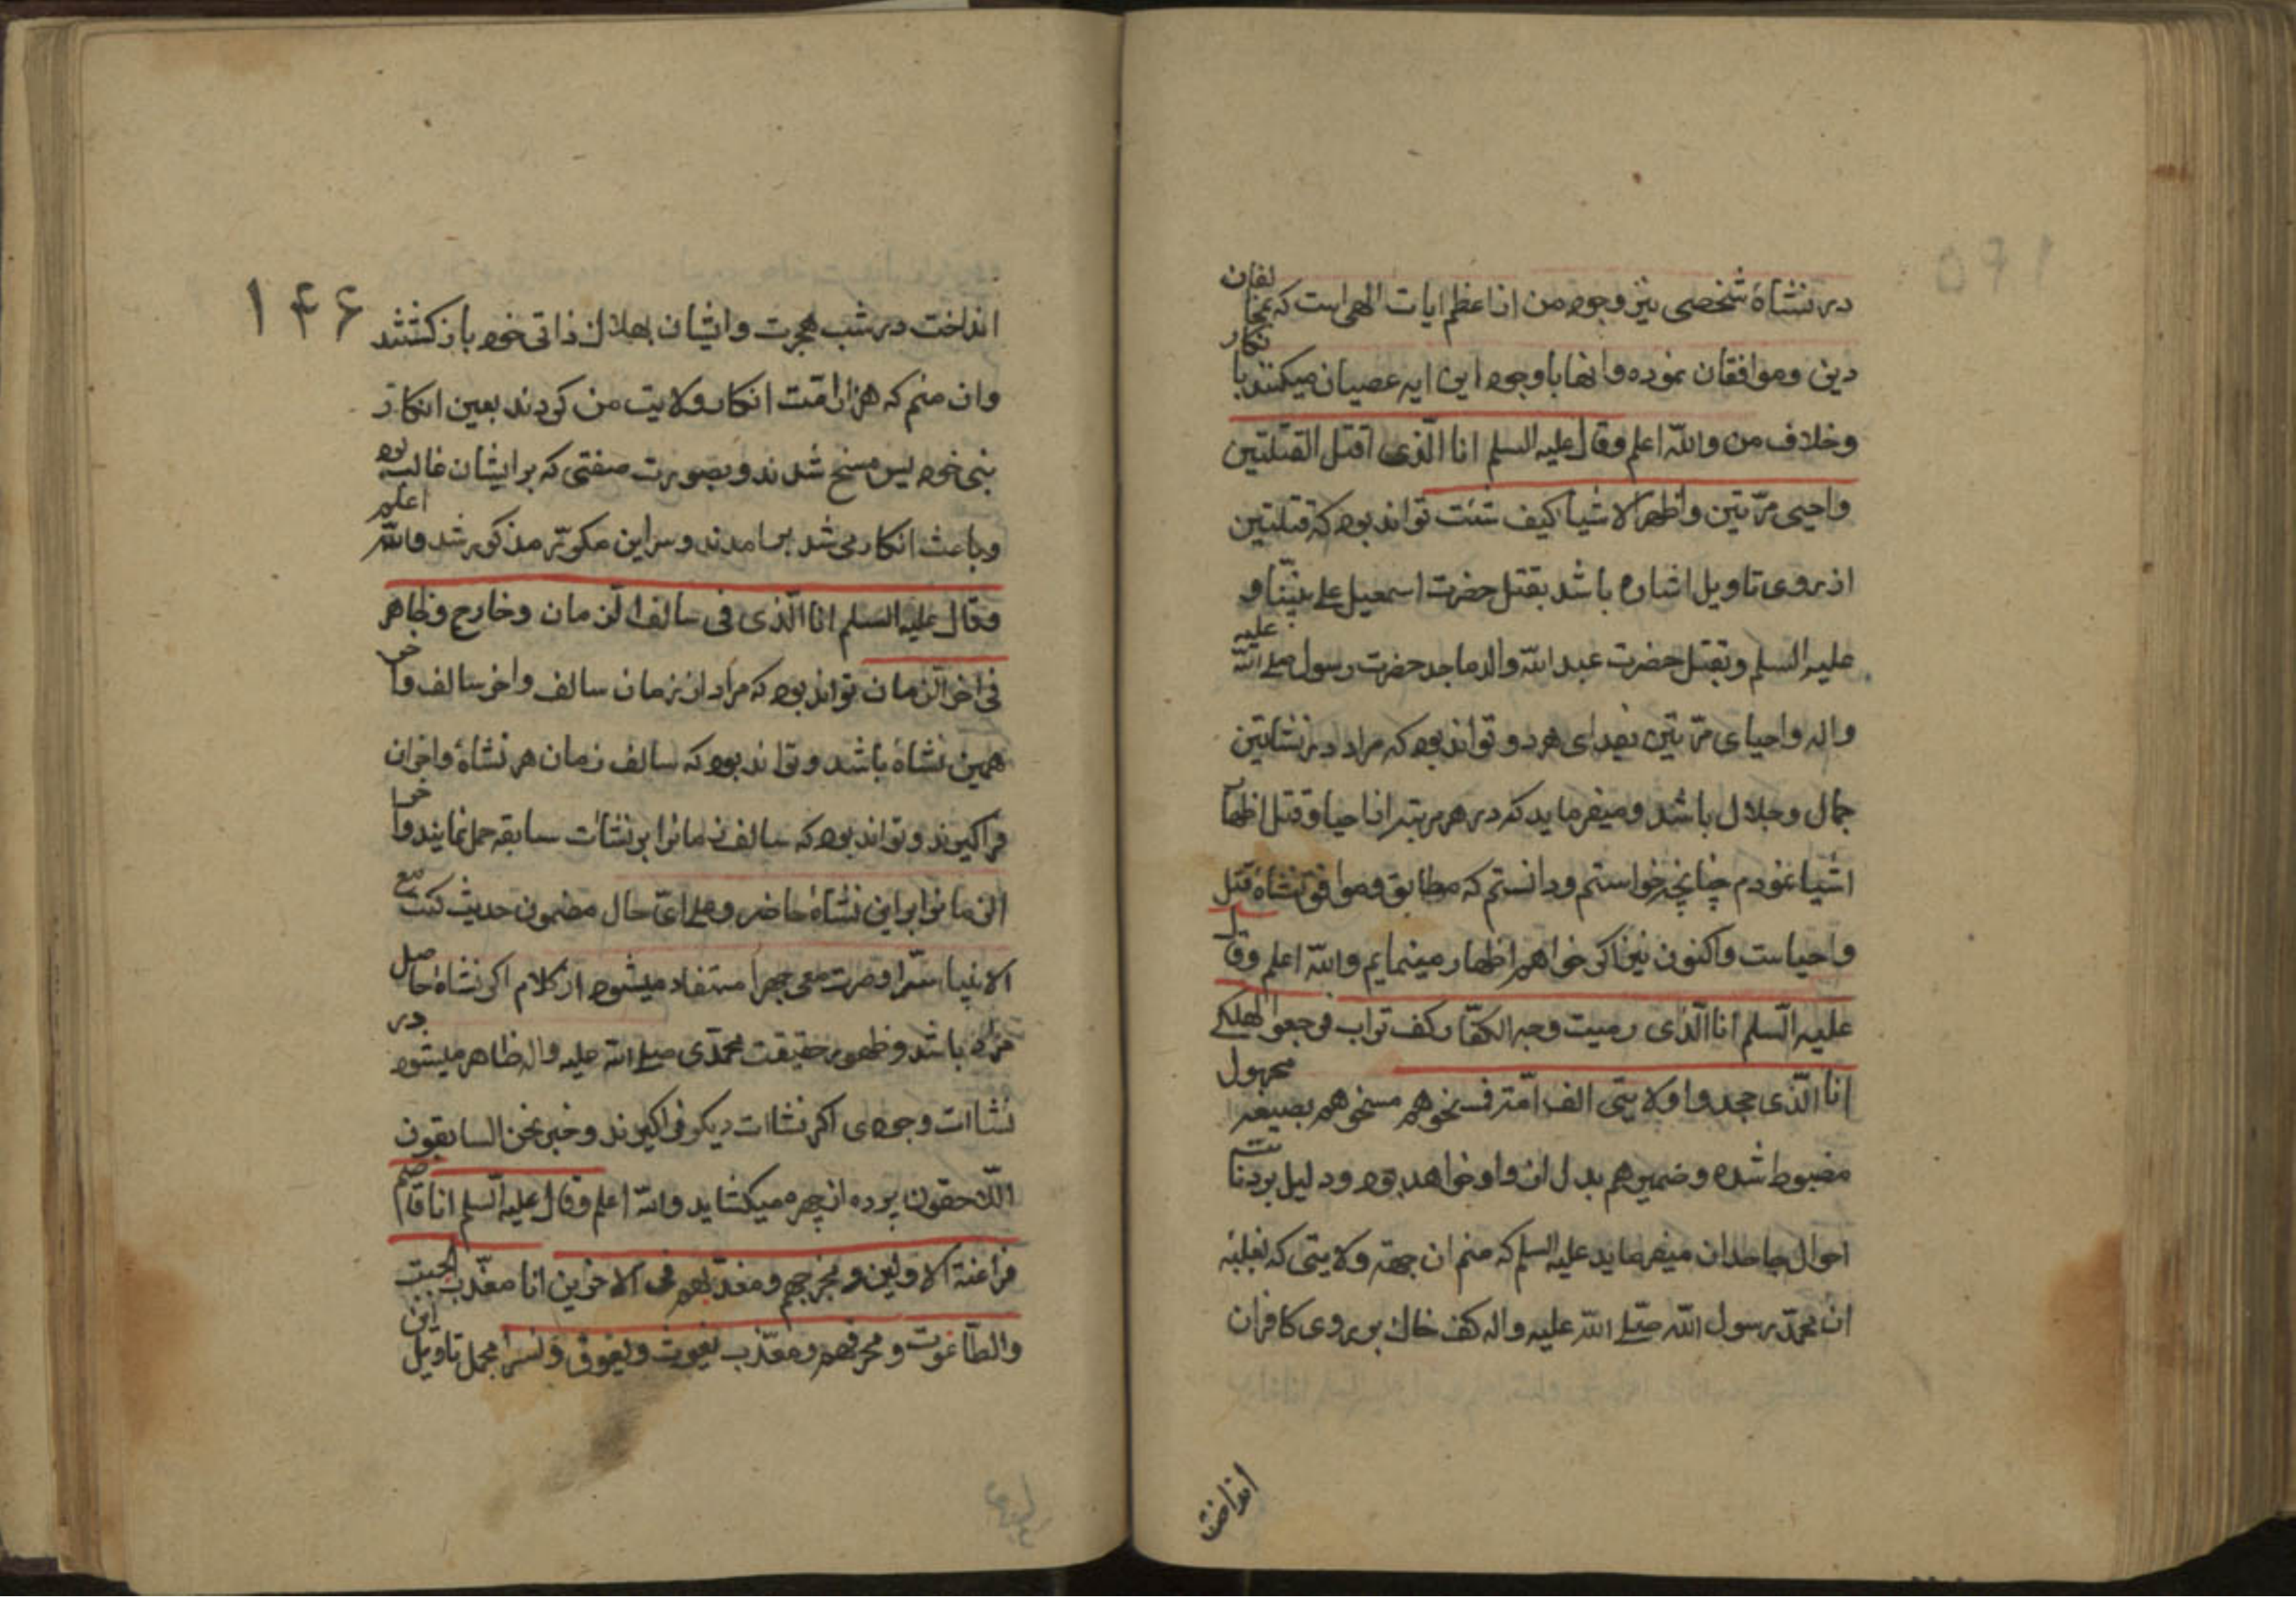 در نشاهٔ شخصی نیز وجود من از اعظم ایات الهی است که بمخالفان
دین و موافقان نموده و انها باوجود این ایه عصیان میکنند بانکار
و خلاف من والله اعلم وقال علیه السلم انا الّذی اقتل القتلتین
واحیی مرّتین واظهر الاشیا کیف شئت تواند بود که قتلتین
از روی تاویل اشاره باشد بقتل حضرت اسمعیل علی نبیّنا و
علیه السلم و بقتل حضرت عبد الله والد ماجد حضرت رسول صلی الله علیه
واله واحیای مرّتین بفدای هر دو تواند بود که مراد در نشاتین
جمال و جلال باشد و میفرماید که در هر مرتبه از احیا و قتل اظهار
اشیا نمودم چنانچه خواستم و دانستم که مطابق و موافق نشاهٔ قتل
واحیاست واکنون نیز اکر خواهم اظهار مینمایم والله اعلم وقال
علیه السّلم انا الّذی رمیت وجه الکفّار کف تراب فرجعوا هلکی
انا الّذی جحدوا ولایتی الف امّة فمسخوهم مسخوهم بصیغه مجهول
مضبوط شده و ضمیر هم بدل از واو خواهد بود و دلیل بر دنائت
احوال جاحدان میفرماید علیه السلم که منم ان جهة ولایتی که بغلبهٔ
ان محمّد رسول الله صلی الله علیه واله کف خاک بر روی کافران
انداخت
۱۴۶
انداخت در شب هجرت وایشان بهلاک ذاتی خود باز کشتند
وان منم که هزار امّت انکار ولایت من کردند بعین انکار
نبی خود پس مسخ شدند و بصورت صفتی که بر ایشان غالب بود
و باعث انکار می شد برامدند و سرّ این مکرّر مذکور شد والله اعلم
وقال علیه السّلم انا الّذی فی سالف الزّمان و خارج وظاهر
فی اخر الزّمان تواند بود که مراد از زمان سالف واخر سالف واخر
همین نشاهٔ باشد و تواند بود که سالف زمان هر نشاهٔ واخر ان
فراکیرند و تواند بود که سالف زمانرا بر نشات سابقه حمل نمایند واخر
الزمانرا بر این نشاهٔ حاضر و علی ایّ حال مضمون حدیث کنت مع
الانبیا سرّا وصرت معی جهرا مستفاد میشود از کلام اکر نشاهٔ حاصل
مراد باشد و ظهور حقیقت محمّدی صلی الله علیه واله ظاهر میشود در
نشاات وجودی اکر نشاات دیکر فراکیرند و خبر نحن السابقون
اللاحقون پرده از چهره میکشاید والله اعلم وقال علیه السّلم انا قاصم
فراعنة الاولین ومخرجهم ومعذّبهم فی الاخرین انا معذّب الجبت
والطّاغوت ومحرقهم ومعذّب یغوث ویعوق ونسرا مجمل تاویل این